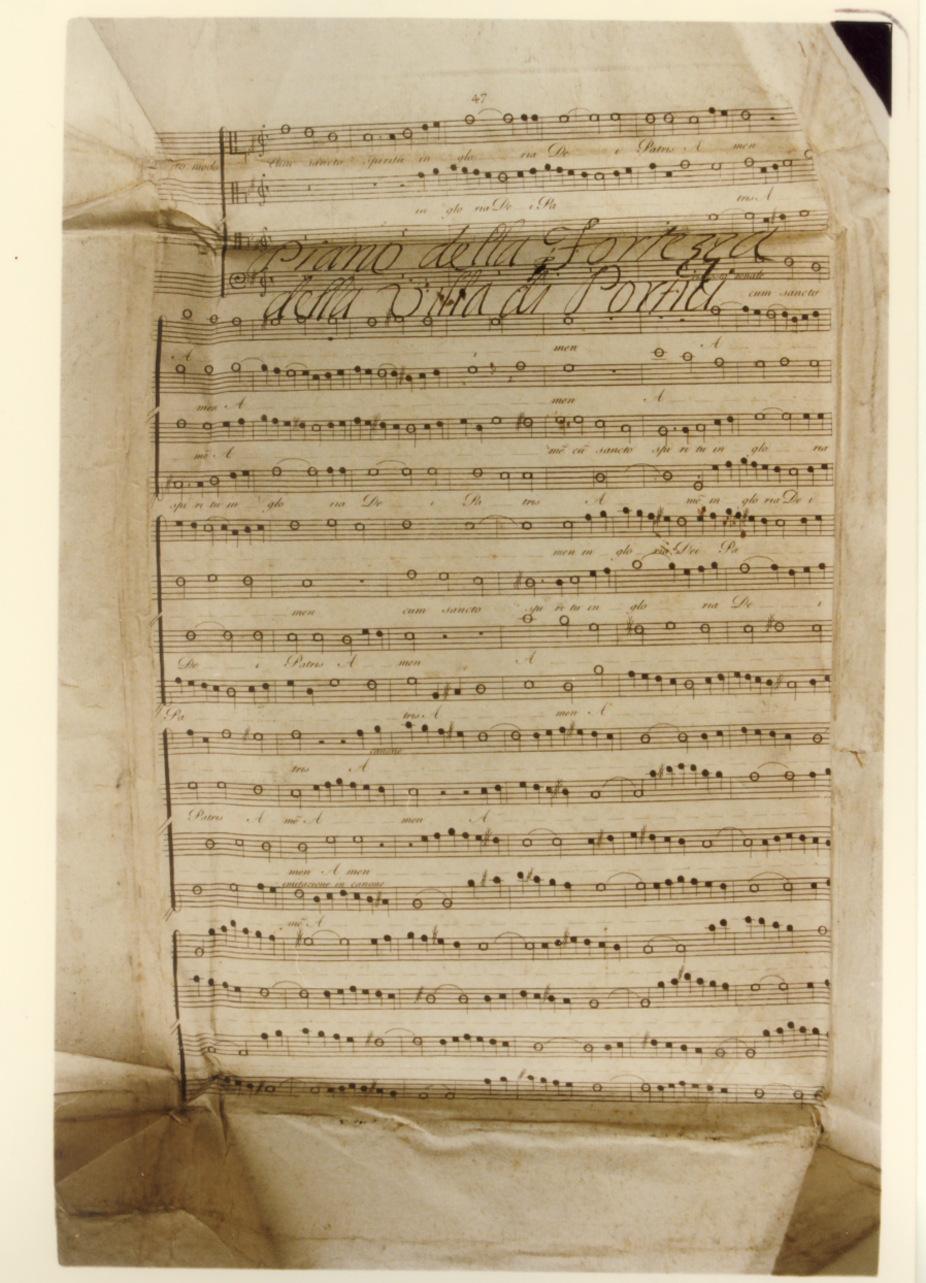 47
Cum sancto spiritu in glo ria De i Patris A men
in glo ria De i Pa tris A
Piano della Fortezza
della Villa di Portici
cum sancto
A men A
men A men A
mẽ A mẽ cũ sancto spi ri tu in glo ria
spi ri tu in glo ria De i Pa tris A mẽ in glo ria De i
men in glo ria Dei Pa
men cum sancto spi ri tu in glo ria De i
De i Patris A men A
Pa tris A men A
canone
tris A
Patris A mẽ A men A
men A men
imitazione in canone
mẽ A